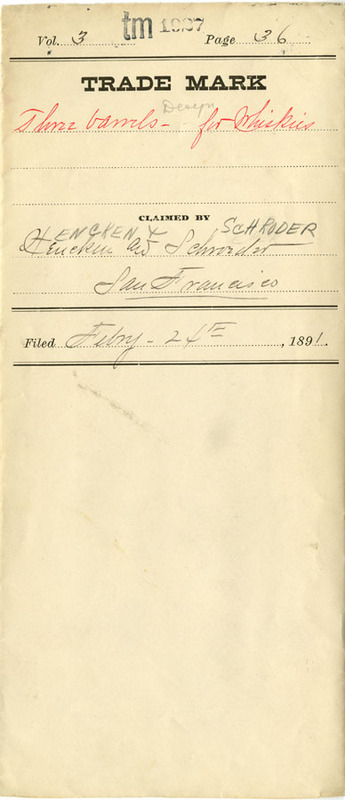 tm 1997
Vol. 3 Page 36
TRADE MARK
Design
Three barrels - for Whiskies
CLAIMED BY
LENCKEN & SCHRODER
Lencken and Schroder
San Francisco
Filed Feby - 24th, 1891.